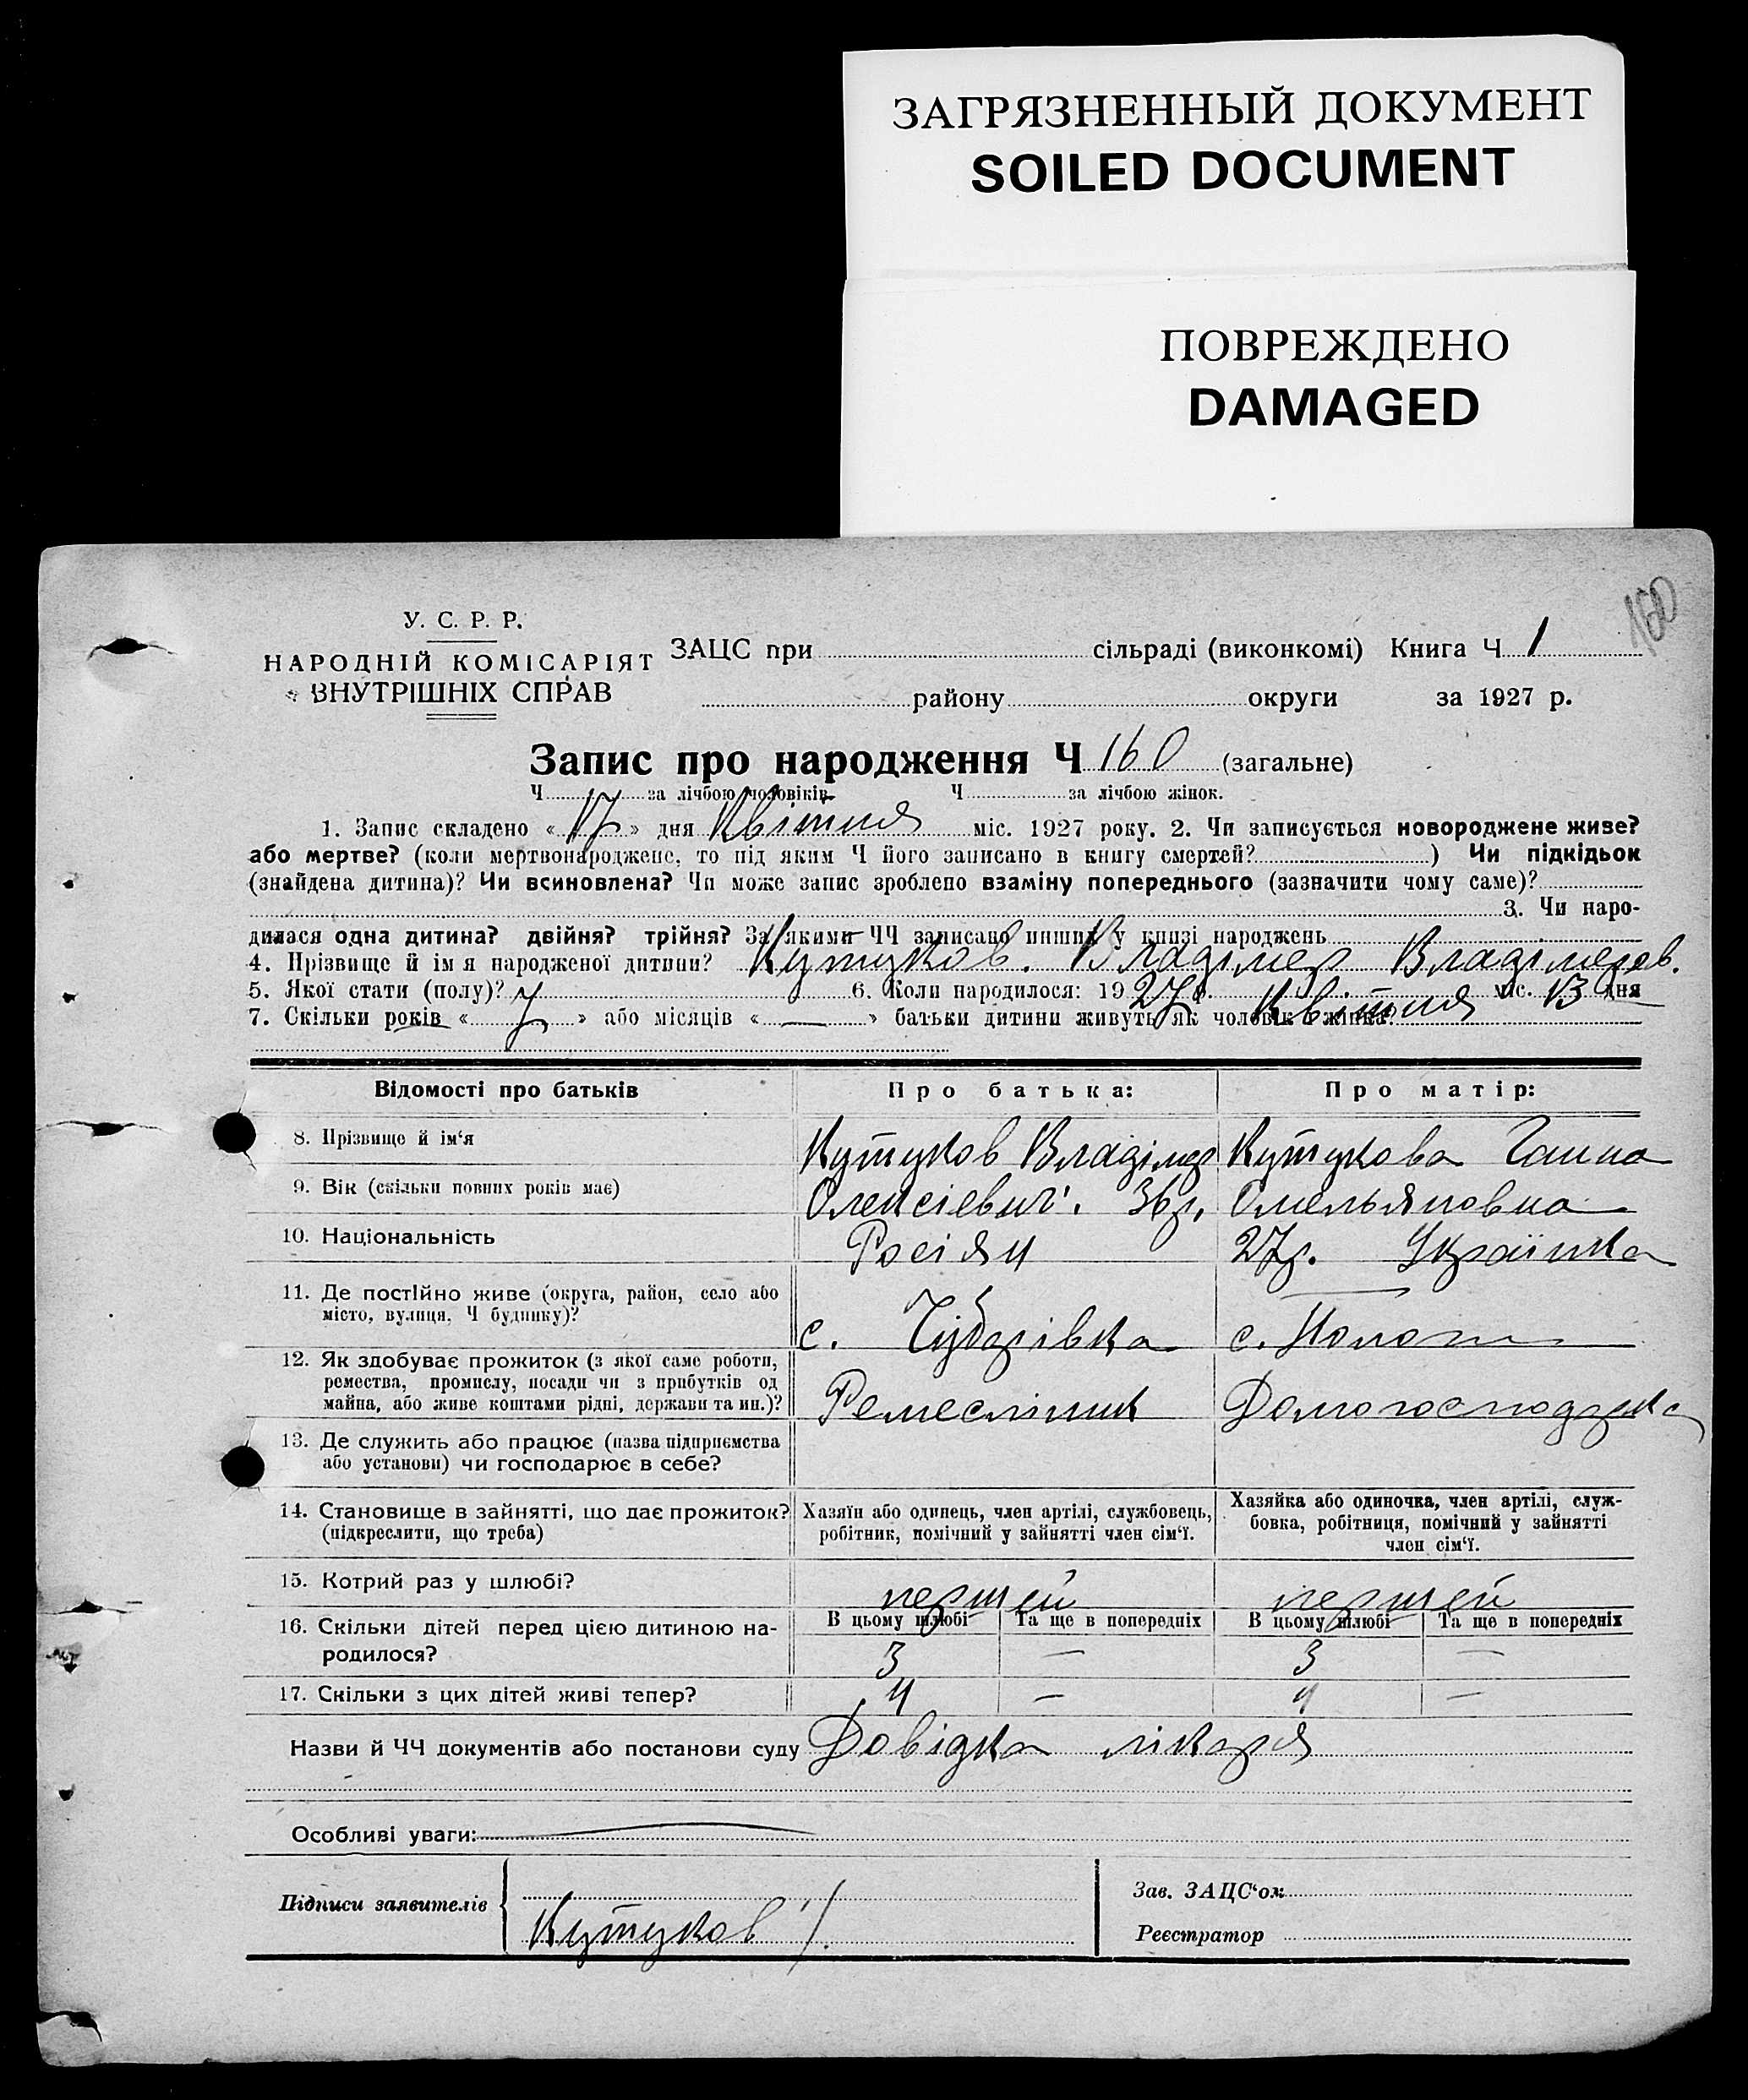 ЗАГРЯЗНЕННЫЙ ДОКУМЕНТ
SOILED DOCUMENT
ПОВРЕЖДЕНО
DAMAGED
160
У. С. Р. Р.
НАРОДНІЙ КОМІСАРІЯТ
ВНУТРІШНІХ СПРАВ
ЗАЦС при сільраді (виконкомі) Книга Ч 1
району округи за 1927 р.
Запис про народження Ч 160 (загальне)
Ч за лічбою чоловіків Ч за лічбою жінок.
1. Запис складено « 17 » дня Квітня міс. 1927 року. 2. Чи записується новороджене живе?
або мертве? (коли мертвонароджене, то під яким Ч його записано в книгу смертей? ) Чи підкідьок
(знайдена дитина)? Чи всиновлена? Чи може запис зроблено взаміну попереднього (зазначити чому саме)?
3. Чи наро-
дилася одна дитина? двійня? трійня? За якими ЧЧ записано инших у книзі народжень
4. Прізвище й ім я народженої дитини? Кутуков. Владімер Владімеров.
5. Якої стати (полу)? Ч 6. Коли народилося: 1927р. Квітня міс. 13 дня
7. Скільки років « 7 » або місяців « — » батьки дитини живуть як чоловік і жінка?
Відомості про батьків Про батька: Про матір:
8. Прізвище й ім‘я Кутуков Владімер Кутукова Ганна
9. Вік (скільки повних років має) Олексієвич. 36 р. Омельяновна
10. Національність Росіян 27р. Українка
11. Де постійно живе (округа, район, село або
місто, вулиця, Ч будинку)? с. Чубарівка с.
12. Як здобуває прожиток (з якої саме роботи,
ремества, промислу, посади чи з прибутків од
майна, або живе коштами рідні, держави та ин.)? Ремеслінник Домогосподарка
13. Де служить або працює (назва підприємства
або установи) чи господарює в себе?
14. Становище в зайнятті, що дає прожиток? Хазяїн або одинець, член артілі, службовець, Хазяйка або одиночка, член артілі, служ-
(підкреслити, що треба) робітник, помічний у зайнятті член сім‘ї. бовка, робітниця, помічний у зайнятті
член сім‘ї.
15. Котрий раз у шлюбі? першей першей
16. Скільки дітей перед цією дитиною на- В цьому шлюбі Та ще в попередніх В цьому шлюбі Та ще в попередніх
родилося? 3 — 3 —
17. Скільки з цих дітей живі тепер? 4 — 4 —
Назви й ЧЧ документів або постанови суду Довідка лікаря
Особливі уваги:
Підписи заявителів Кутуков
Зав. ЗАЦС‘ом
Реєстратор